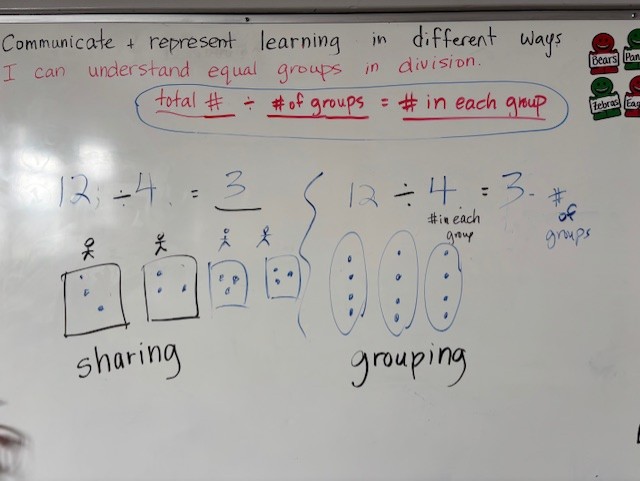 Communicate + represent learning in different ways
I can understand equal groups in division.
total # ÷ # of groups = # in each group
Bears
Zebras
12 ÷ 4 = 3
12 ÷ 4 = 3
# in each
group
#
of
groups
sharing
grouping